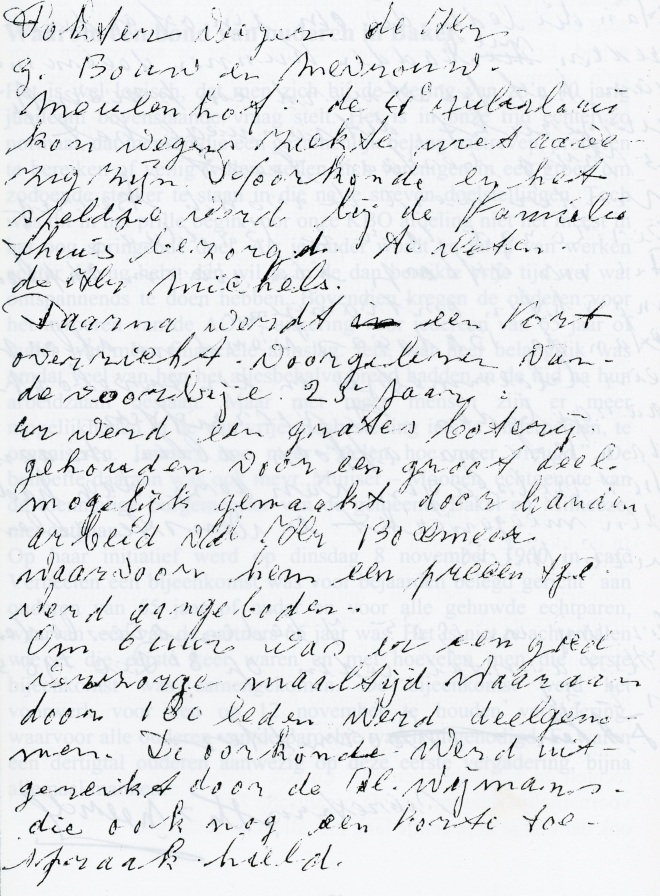 Dokter Veiger de Hr
g. Bouw en Mevrouw
Meulenhof. de 4e jubilaris
kon wegens ziekte niet aanwe-
zig zijn. D'oorkonde en het
speldje werd bij de Familie
thuis bezorgd.
de Hr Michels.
Daarna werdt een kort
overzicht voorgelezen van
de voorbije 25 jaar.
er werd een gratis loterij
gehouden voor een groot deel
mogelijk gemaakt door handen
arbeid v.d. Hr Boxmeer.
waarvoor hem een presentje
werd aangeboden.
Om 6 uur was er een goed
verzorge maaltijd. Waaraan
door 180 leden werd deelgeno-
men. De oorkonde werd uit-
gereikt door de Wijmans.
die ook nog een korte toe-
spraak hield.